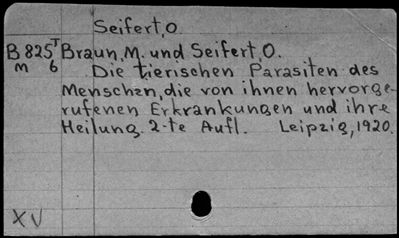 Seifert, O
B 825 T Braun, M. und Seifert, O.
m 6 Die tierischen Parasiten des
Menschen, die von ihnen hervorge-
rufenen Erkrankungen und ihre
Heilung. 2-te Aufl. Leipzig, 1920.
XV